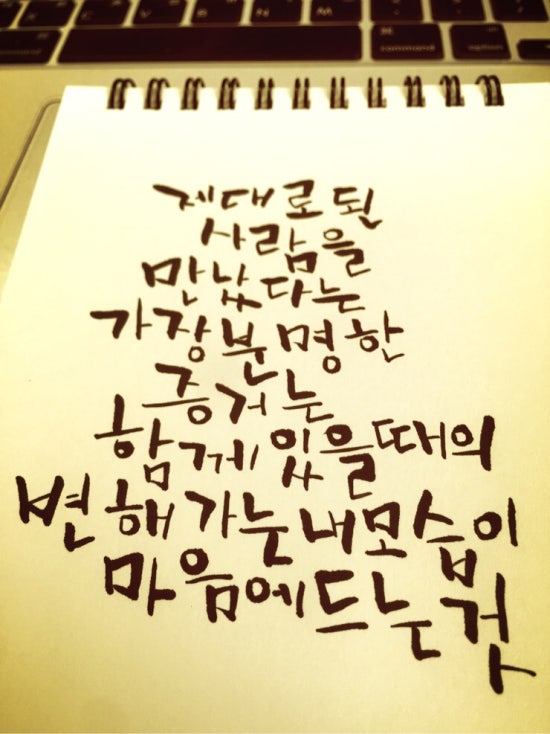 command
option
제대로된
사람을
만났다는
가장분명한
증거는
함께있을때의
변해가는내모습이
마음에드는것